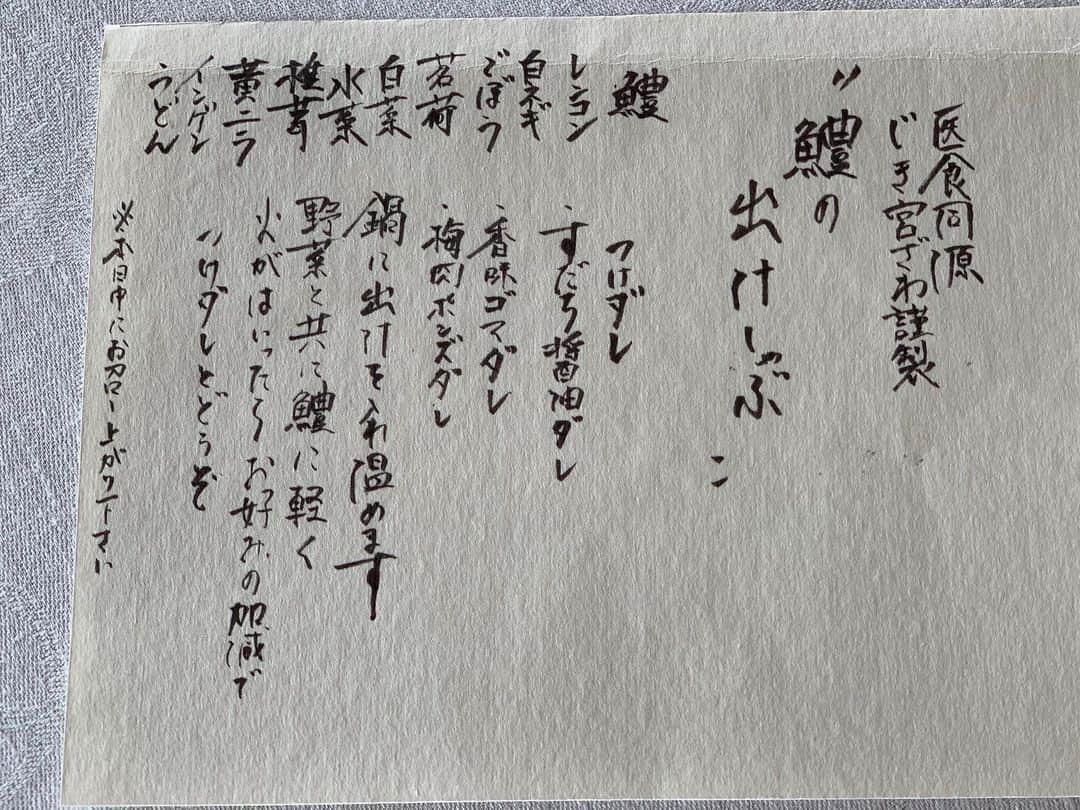 医食同源
じき宮ざわ謹製
〃鱧の
出汁しゃぶ〃
鱧
レンコン
白ネギ
ごぼう
茗荷
白菜
水菜
椎茸
黄ニラ
インゲン
うどん
つけダレ
・すだち醤油ダレ
・香味ゴマダレ
・梅肉ポンズダレ
鍋に出汁を入れ温めます
野菜と共に鱧に軽く
火がはいったらお好みの加減で
つけダレとどうぞ
※本日中にお召し上がり下さい